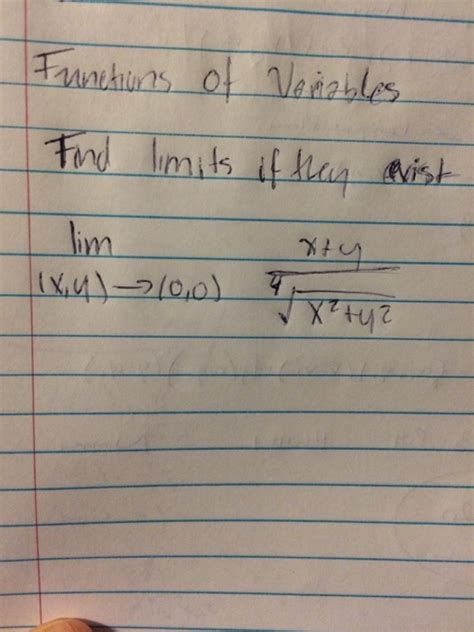 Functions of Variables
Find limits if they exist
lim x+y
(x,y)→(0,0) 4√x²+y²